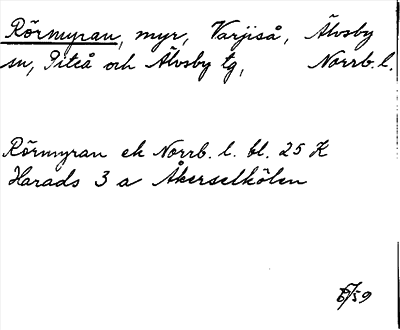 Rörmyran, myr, Varjiså, Älvsby
sn, Piteå och Älvsby tg, Norrb. l.
Rörmyran ek Norrb. l. bl. 25 K
Harads 3 a Åkerselkölen
/59